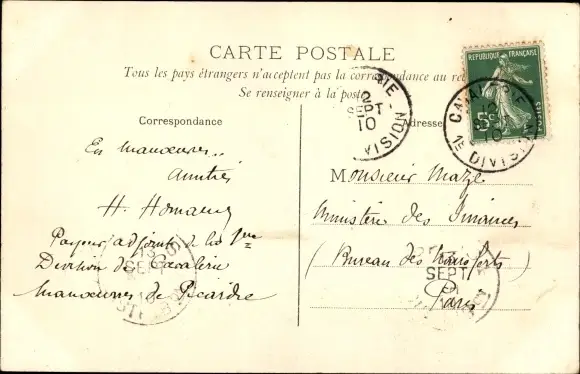 CARTE POSTALE
Tous les pays étrangers n'acceptent pas la correspondance au
Se renseigner à la poste
Correspondance
Adresse
En manœuvres..
Amitiés
H.
Payeur adjoint de la 1ère
Division de Cavalerie
Manœuvres de Picardie
Monsieur Maze
Ministère des Finances
(Bureau des transferts)
Paris
RÉPUBLIQUE FRANÇAISE
5c
POSTES
SEPT
10
1E DIVISION
SEPT
SEPT